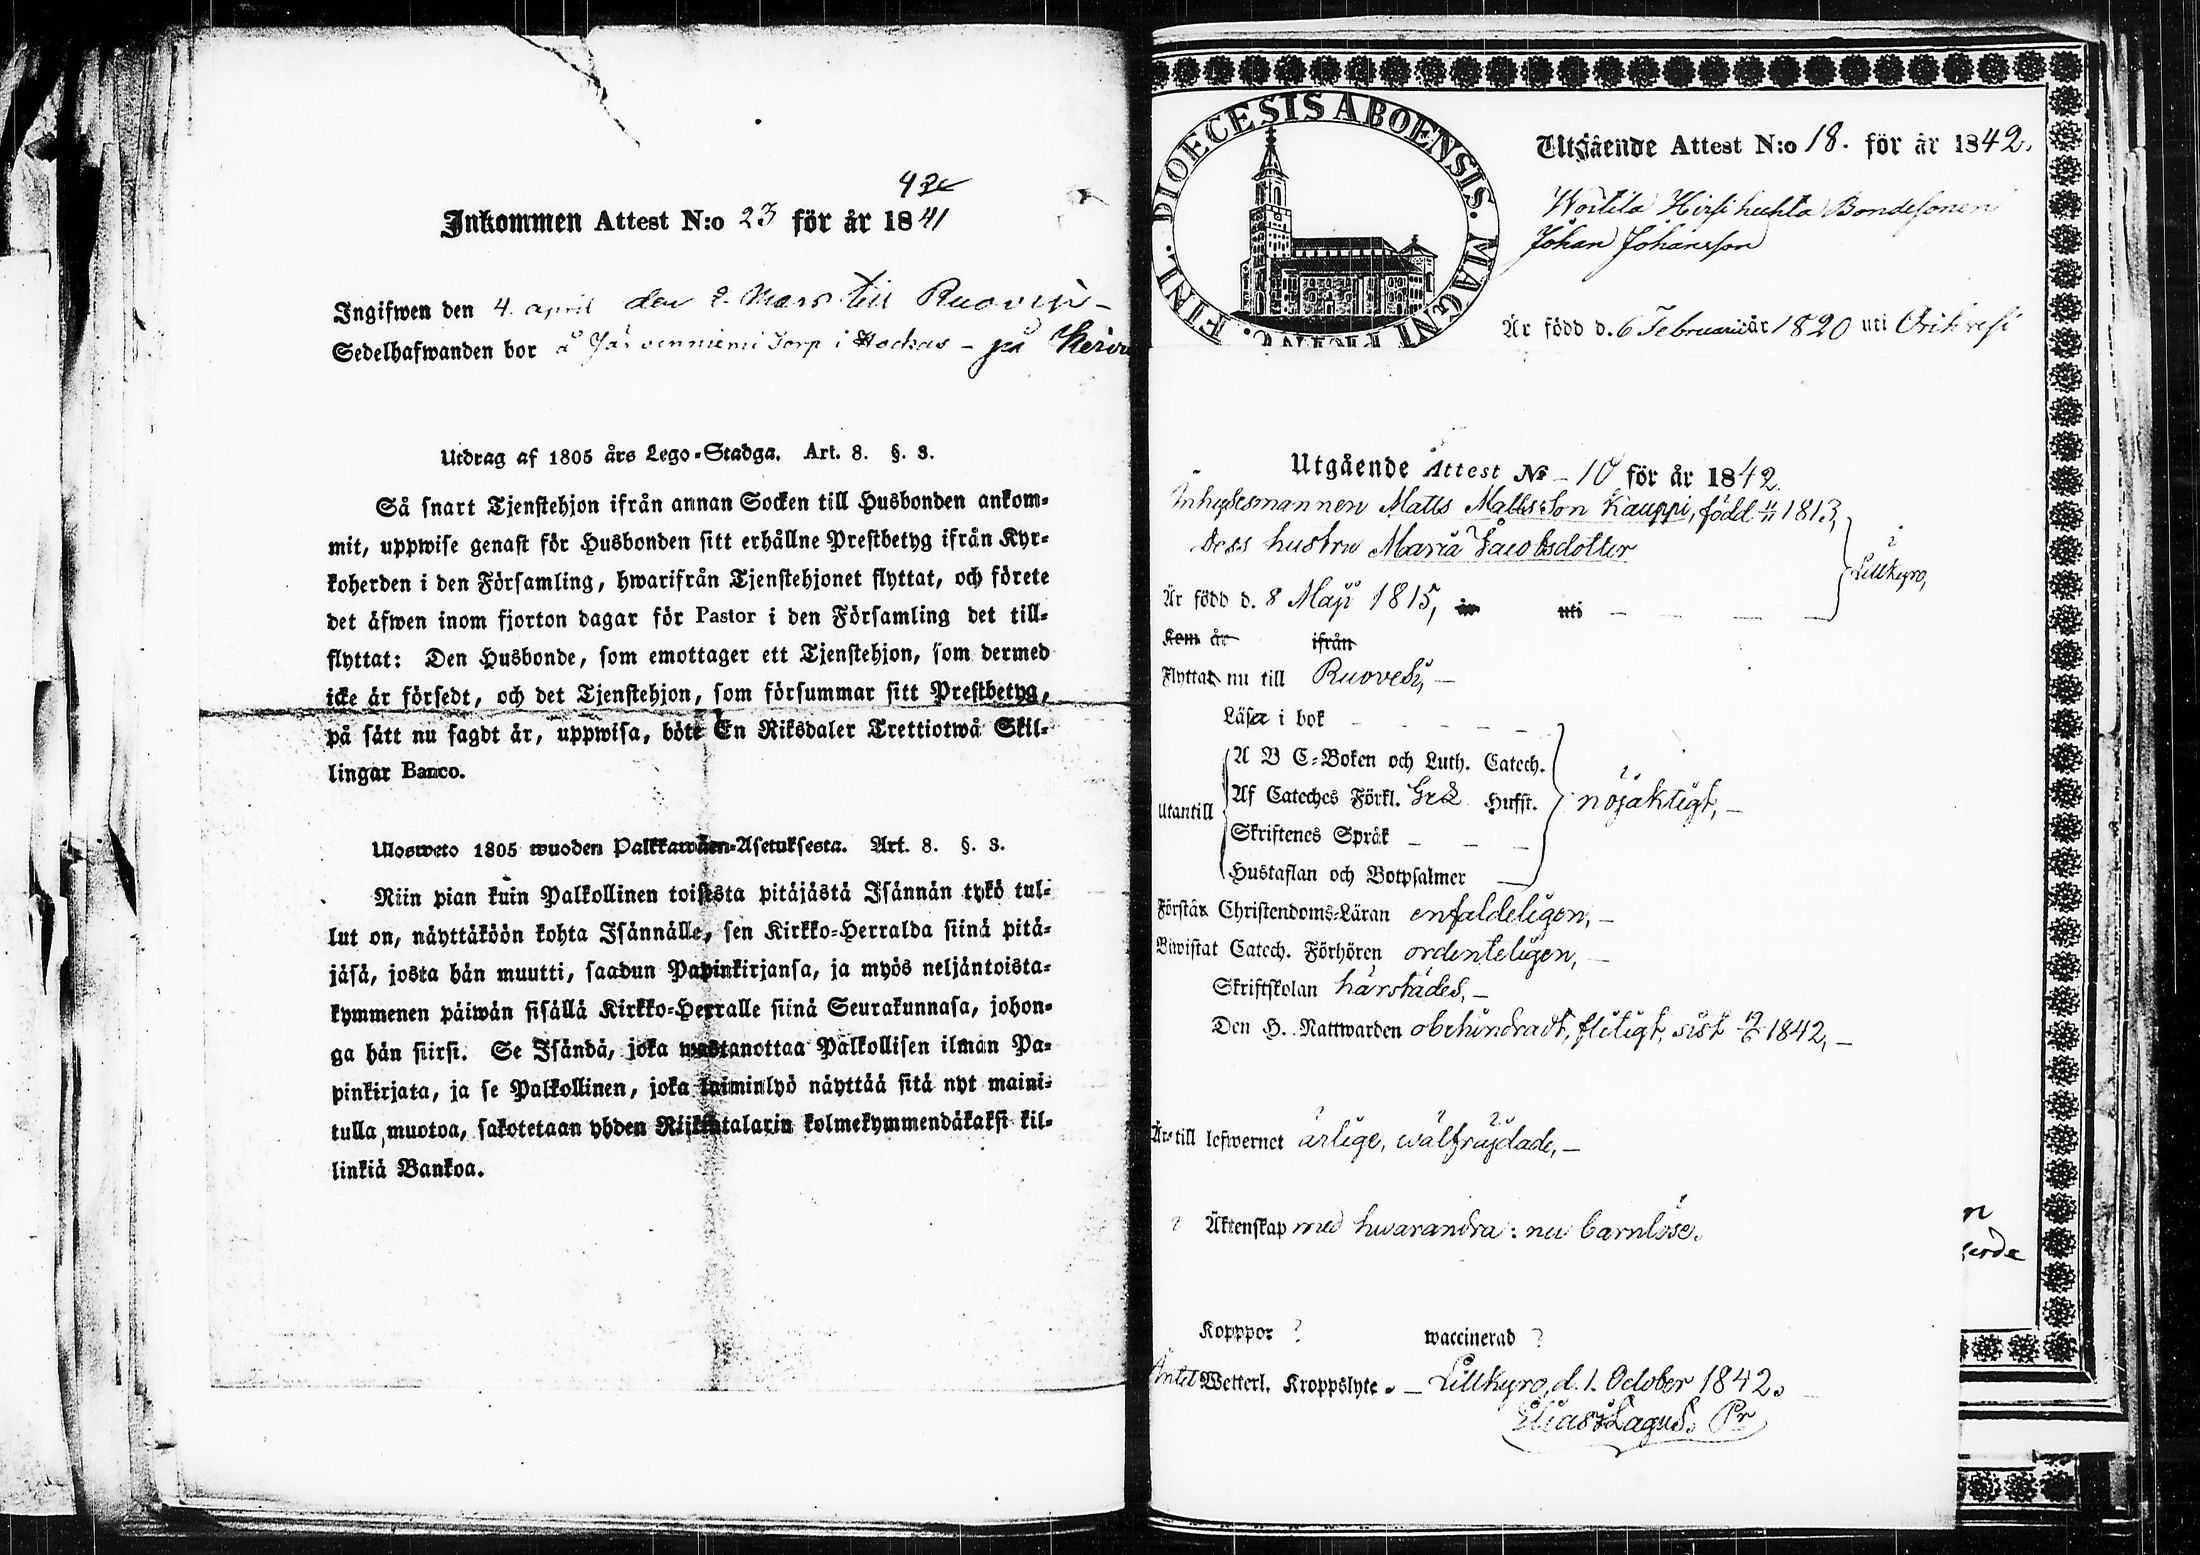 42
Inkommen Attest N:o 23 för år 1841
Ingifwen den 4. april den 2. Mars till Ruovesi -
Sedelhafwanden bor å Järvenniemi Torp i Hockas - på
Utdrag af 1805 års Lego-Stadga. Art. 8. §. 3.
Så snart Tjenstehjon ifrån annan Socken till Husbonden ankom-
mit, uppwise genast för Husbonden sitt erhållne Prestbetyg ifrån Kyr-
koherden i den Församling, hwarifrån Tjenstehjonet flyttat, och förete
det äfwen inom fjorton dagar för Pastor i den Församling det till-
flyttat: Den Husbonde, som emottager ett Tjenstehjon, som dermed
icke är försedt, och det Tjenstehjon, som försummar sitt Prestbetyg,
på sätt nu sagdt är, uppwisa, böte En Riksdaler Trettiotwå Skil-
lingar Banco.
Ulosweto 1805 wuoden Palkkawäen-Asetuksesta. Art. 8. §. 3.
Niin pian kuin Palkollinen toisesta pitäjästä Isännän tykö tul-
lut on, näyttäköön kohta Isännälle, sen Kirkko-Herralda siinä pitä-
jäsä, josta hän muutti, saadun Papinkirjansa, ja myös neljäntoista-
kymmenen päiwän sisällä Kirkko-Herralle siinä Seurakunnasa, johon-
ga hän siirsi. Se Isändä, joka wastanottaa Palkollisen ilman Pa-
pinkirjata, ja se Palkollinen, joka laiminlyö näyttää sitä nyt maini-
tulla muotoa, sakotetaan yhden Riikintalarin kolmekymmendäkaksi kil-
linkiä Bankoa.
FINL. DIOECESIS ABOENSIS. MAGNI
Utgående Attest N:o 18. för år 1842.
Hirsihuhta Bondesonen
Johan Johansson
Är född d. 6 Februarii år 1820 uti Orihvesi
Utgående Attest No - 10 för år 1842.
Inhysesmannen Matts Mattsson Kauppi, född 1813,
Dess hustru Maria Jacobsdotter
i Lillkyro,
Är född d. 8 Maji 1815, uti
Kom år ifrån
Flyttat nu till Ruovesi, -
Läser i bok
A B C-Boken och Luth. Catech.
Utantill Af Cateches Förkl. Hufst. nöjaktigt, -
Skriftenes Språk
Hustaflan och Botpsalmer
Förstår Christendoms-Läran enfaldeligen, -
Biwistat Catech. Förhören ordenteligen, -
Skriftskolan härstädes, -
Den H. Nattwarden obehindradt, flitigt, sist 19/6 1842, -
Är till lefwernet ärlige, wälfrajdade, -
i Äktenskap med hwarandra: nu barnlöse.
Kopppor ? waccinerad ?
Intet Wetterl. Kroppslyte. - Lillkyro, d. 1. October 1842.
Elias Lagus. Pr